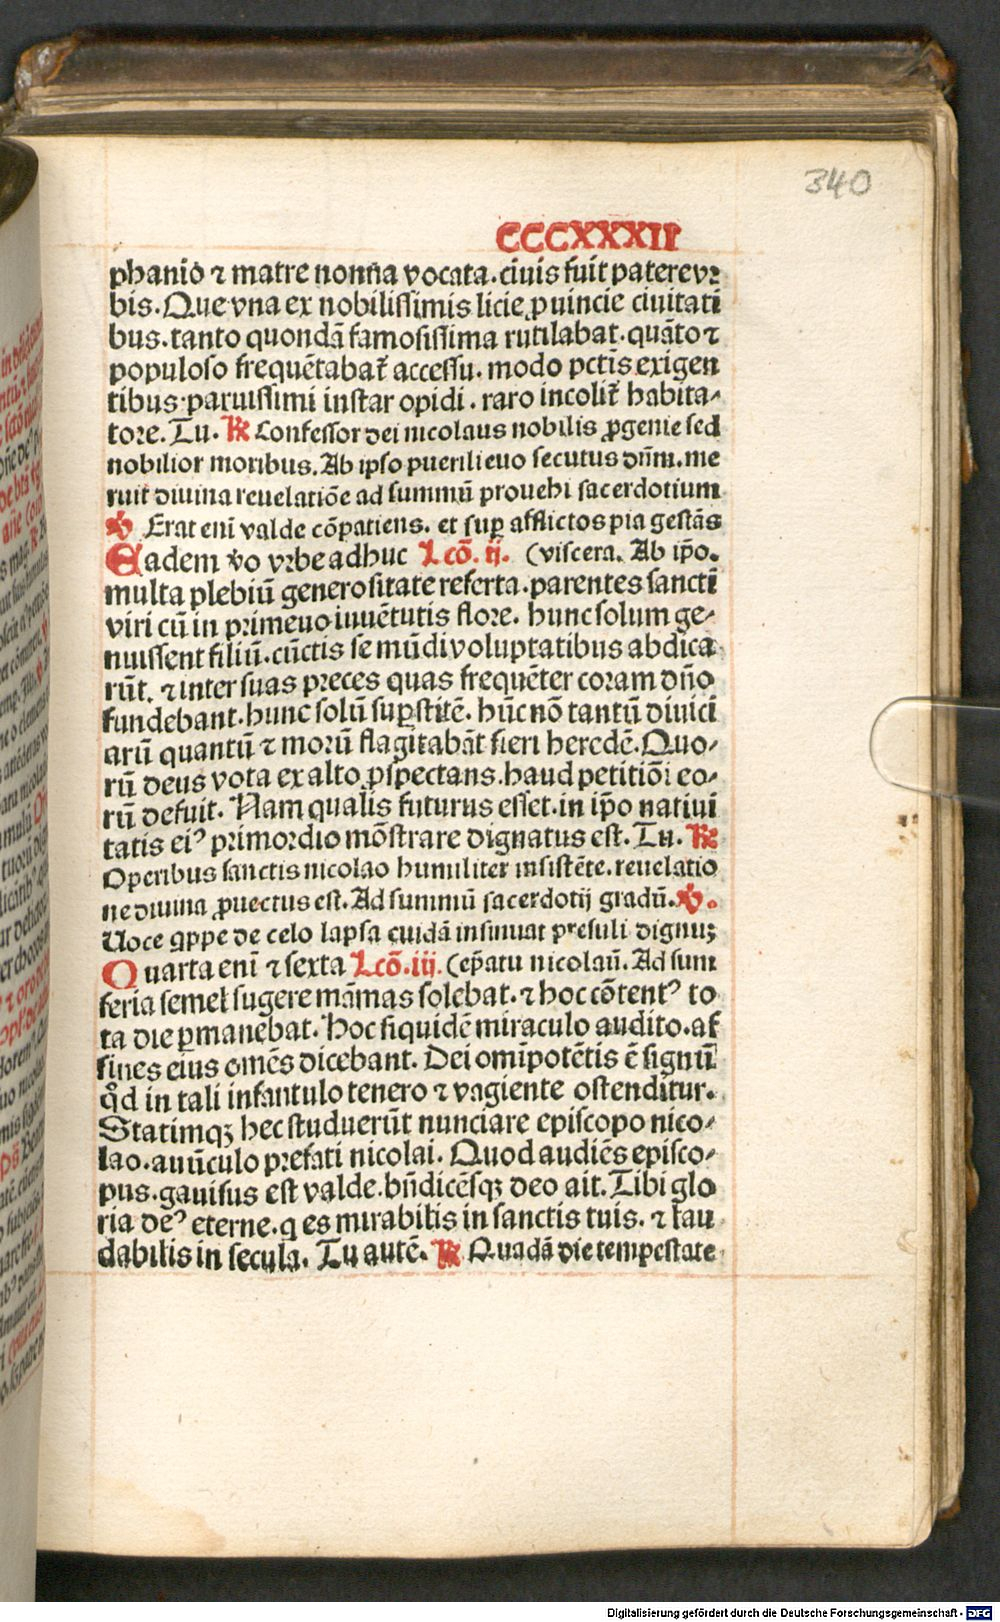 340
CCCXXXII
phanio ⁊ matre nonna vocata. ciuis fuit patereꝰ vꝛ
bis. Que vna ex nobilissimis licie ꝓuincie ciuitati
bus. tanto quondā famosissima rutilabat. quāto ⁊
populoso frequētabat᷑ accessu. modo pctīs exigen
tibus paruissimi instar opidi. raro incolit᷑ habita⸗
tore. Tu. ℟ Confessor dei nicolaus nobilis ꝓgenie sed
nobilior moribus. Ab ipso puerili euo secutus dn̄m. me
ruit diuina reuelatiōe ad summū prouehi sacerdotium
℣ Erat eni̅ valde cōpatiens. et suꝑ afflictos pia gestās
Eadem v̓o vꝛbe adhuc Lcō. ij. (viscera. Ab ip̄o.
multa plebiū generositate referta. parentes sancti
viri cū in primeuo iuuētutis flore. hunc solum ge⸗
nuissent filiū. cūctis se mūdi voluptatibus abdica
rūt. ⁊ inter suas preces quas frequēter coram dn̄o
fundebant. hunc solū suꝑstitē. hūc nō tantū diuici
arū quantū ⁊ morū flagitabāt fieri heredē. Quo⸗
rū deus vota ex alto ꝓspectans. haud petitiōi eo⸗
rū defuit. Nam qualis futurus esset. in ip̄o natiui
tatis eiꝰ primordio mōstrare dignatus est. Tu. ℟
Operibus sanctis nicolao humiliter insistēte. reuelatio
ne diuina ꝓuectus est. Ad summū sacerdotij gradū. ℣.
Uoce qꝑpe de celo lapsa cuidā insinuat presuli dignuꝫ
Quarta eni̅ ⁊ sexta Lcō. iij. (ep̄atu nicolaū. Ad sum
feria semel sugere māmas solebat. ⁊ hoc cōtentꝰ to
ta die ꝑmanebat. Hoc siquidē miraculo audito. af
fines eius omēs dicebant. Dei omīpotētis ē signū
qd̓ in tali infantulo tenero ⁊ vagiente ostenditur.
Statimqꝫ hec studuerūt nunciare episcopo nico⸗
lao. auūculo prefati nicolai. Quod audiēs episco⸗
pus. gauisus est valde. bn̄dicēsqꝫ deo ait. Tibi glo
ria deꝰ eterne. q es mirabilis in sanctis tuis. ⁊ lau
dabilis in secula. Tu autē. ℟ Quadā die tempestate
Digitalisierung gefördert durch die Deutsche Forschungsgemeinschaft - DFG